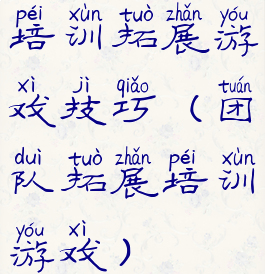 péi xùn tuò zhǎn yóu
培训拓展游
xì jì qiǎo tuán
戏技巧（团
duì tuò zhǎn péi xùn
队拓展培训
yóu xì
游戏）